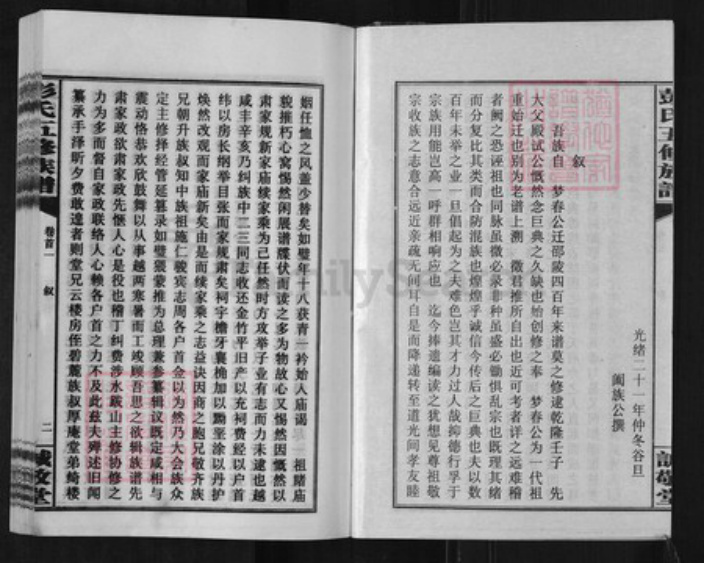 光绪二十一年仲冬谷旦
阖族公撰
叙
吾族自 梦春公迁邵陵四百年来谱莫之修逮乾隆壬子 先
大父殿试公慨然念巨典之久缺也始创修之奉 梦春公为一代祖
重始迁也别为老谱上溯 徵君推所自出也近可考者详之远难稽
者阙之恐诬祖也同脉虽微必录非种虽盛必锄惧乱宗也既理其绪
而分复比其类而合防混族也煌煌乎诚信今传后之巨典也夫以数
百年未举之业一旦倡起为之夫难色岂其才力过人哉抑德行孚于
宗族用能岂高一呼群相响应也 迄今捧遗编读之犹想见尊祖敬
宗收族之志意合远近亲疏无间耳自是而降递转至道光间孝友睦
姻任恤之风盖少替矣如璧年十八获青一衿始入庙谒 祖睹庙
貌摧朽心窝惕然闲展谱牒伏而读之多为物故心又惕然因慨然以
肃家规新家庙续家乘为己任然时方攻举子业有志而力未逮也越
咸丰辛亥乃纠族中二三同志收还金竹平旧产以充祠费经以户首
纬以房长纲举目张而家规肃矣祠宇檐牙襄桷加以黝垩涂以丹护
焕然改观而家庙新矣由是而续家乘之志益诀因商之胞兄敬齐族
兄朝升族叔知中族祖施仁骏宾志周各户首佥以为然乃大会族众
定主修择经管延纂录如璧猥蒙推为总理兼参纂辑议既定咸相与
震动恪恭欢欣鼓舞以从事越两寒暑而工竣顾吾思之欲辑族谱先
肃家政欲肃家政先惬人心是役也稽丁纠费涉水跋山主修协修之
力为多而督自家政联络人心赖各户首之力不及此兹夫殚述旧闻
纂承手泽昕夕费敢遑者则堂兄云楼房侄碧麓族叔厚庵堂弟绮楼
彭氏五修族谱
卷首一
叙
二
诚敬堂
彭氏五修族谱
诚敬堂